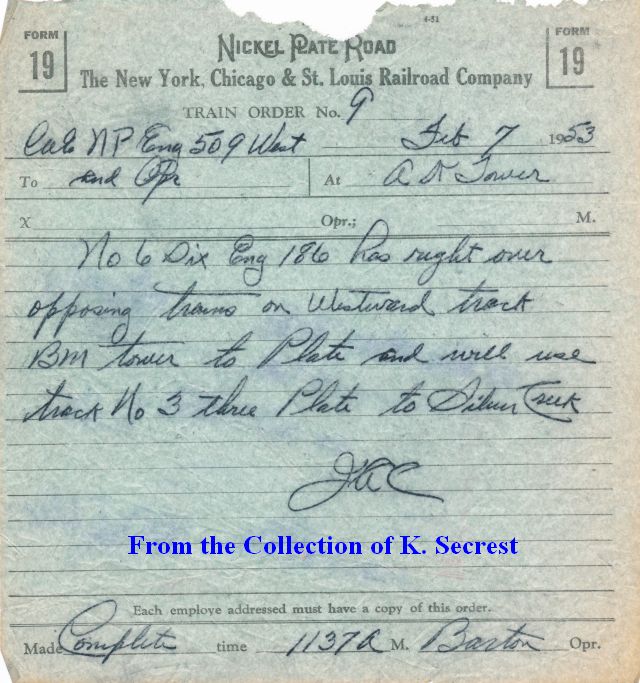 4-51
FORM 19
NICKEL PLATE ROAD
FORM 19
The New York, Chicago & St. Louis Railroad Company
TRAIN ORDER No. 9
C&E NP Eng 509 West Feb 7 1953
To and Opr At Tower
X Opr.; M.
No 6 Six Eng 186 has right over
opposing trains on Westward track
BM tower to Plate and will use
track No 3 three Plate to Silver Creek
From the Collection of K. Secrest
Each employe addressed must have a copy of this order.
Made Complete time 1137A M. Barton Opr.